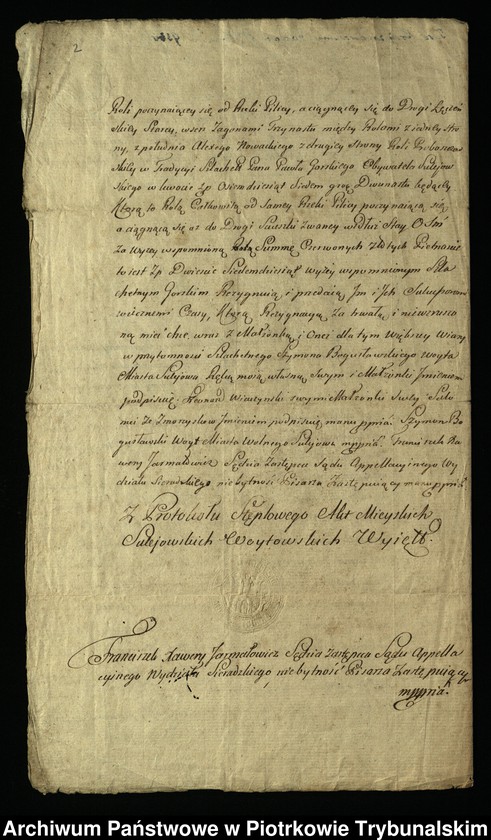 2
Roli poczynaiący się od Rzeki Pilicy, a ciągnący się do Drogi
skiey Starey, wszerz Zagonami Trzynastu między Rolami z iedney stro
ny, z południa Alexego Nowackiego z drugiey strony Roli
skiey w Tradycyi Szlachet: Pana Pawła Gorskiego Obywatela Sulejow
skiego w kwocie Zp Osiemdziesiąt Siedem grosz Dwunastu będący
Którą to Rolą Całkowitą od Samey Rzeki Pilicy poczynaiącą się
a ciągnącą się aż do Drogi Zwaney wdłuż Stay Ośm
Za wyżey wspomnioną Summę Czerwonych Złotych Pietnaście
to iest Zp Dwieście Siedemdziesiąt wyżey wspomnionym Szla
chetnym Gorskim Rezygnuią i przedaią Im i Ich Sukcessorom
wiecznemi Czasy, Którą Rezygnacyą Za trwałą i niewzruszo
ną mieć chce, wraz z Małżonką i Onei dla tym większey Wiary
w przytomności Szlachetnego Szymona Bogusławskiego Woyta
Miasta Sulejowa Ręką moią własną Swym i Małżonki Imieniem
podpisuię. Swym i Małżonki Swey Salo
mei ze Zmorysków Imieniem podpisuię manu ppria. Szymon Bo
gusławski Woyt Miasta Wolnego Sulejowa mppria. Franciszek Xa
wery Jarmołowicz Sędzia Zastępca Sądu Appellacyinego Wy
działu Sieradzkiego niebytność Pisarza Zastępuiący manu ppria
Z Protokułu Stęplowego Akt Mieyskich
Sulejowskich Woytowskich Wyięte.
Franciszek Xawery Jarmołowicz Sędzia Zastępca Sądu Appella
cyinego Wydziału Sieradzkiego niebytność Pisarza Zastępuiący
mppria
Archiwum Państwowe w Piotrkowie Trybunalskim